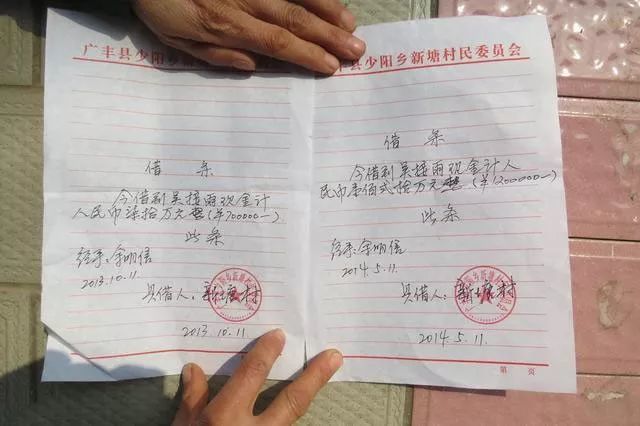 广丰县少阳乡新塘村民委员会
借条
今借到吴接雨现金计
人民币柒拾万元整(¥700000—)
此条
经手:余明信
2013.10.11.
具借人:新塘村
2013.10.11.
广丰县少阳乡新塘村民委员会
借条
今借到吴接雨现金计人
民币壹佰贰拾万元整(¥1200000—)
此条
经手:余明信
2014.5.11.
具借人:新塘村
2014.5.11.
第 页